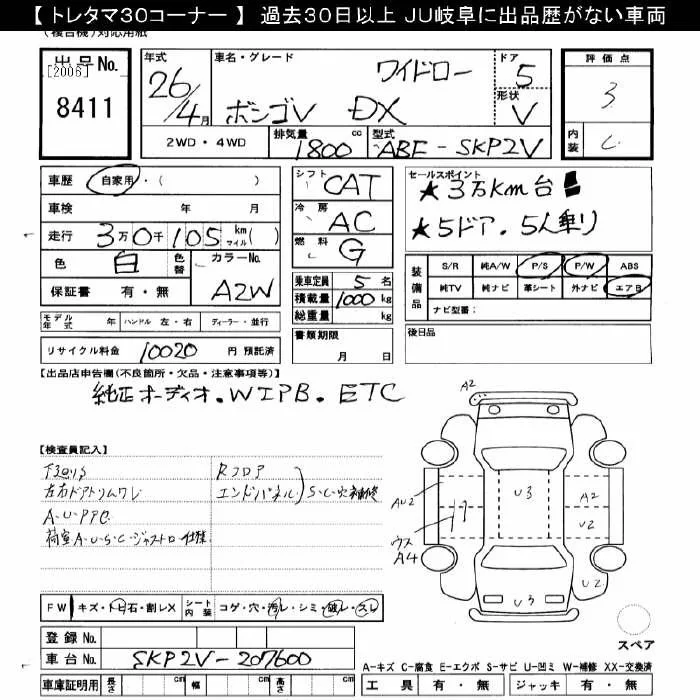 【 トレタマ30コーナー 】 過去30日以上 JU岐阜に出品歴がない車両
(複合機)対応用紙
出品No.
[2006]
8411
年式
26/4月
車名・グレード
ワイドロー
ボンゴV DX
ドア
5
形状
V
評価点
3
内装
C
2WD・4WD
排気量
1800cc
型式
ABF-SKP2V
車歴 自家用・( )
車検 年 月
走行 3万0千105 km マイル( )
色 白 色替 カラーNo. A2W
保証書 有・無
シフト CAT
冷房 AC
燃料 G
セールスポイント
★3万km台
★5ドア.5人乗り
乗車定員 5名
積載量 1000kg
総重量 kg
装備品
S/R 純A/W P/S P/W ABS
純TV 純ナビ 革シート 外ナビ エアB
ナビ型番:
モデル年式 年 ハンドル 左・右 ディーラー・並行
書類期限
月 日
後日品
リサイクル料金 10020 円 預託済
【出品店申告欄(不良箇所・欠品・注意事項等)】
純正オーディオ.WエアB.ETC
【検査員記入】
下廻りS
左右ドアトリムワレ
A・U・PPC
荷室A・U・S・C・ジャストロー仕様
Rフロア
エンドパネル
S・C・穴補修
A2
AU2
ウス
A4
U3
A2
U2
U2
U3
スペア
FW キズ・トビ石・割レX シート内装 コゲ・穴・汚レ・シミ・破レ・スレ
登録No.
車台No. SKP2V-207600
車庫証明用 長さ cm 幅 cm 高さ cm
A-キズ C-腐食 E-エクボ S-サビ U-凹ミ W-補修 XX-交換済
工具 有・無 ジャッキ 有・無